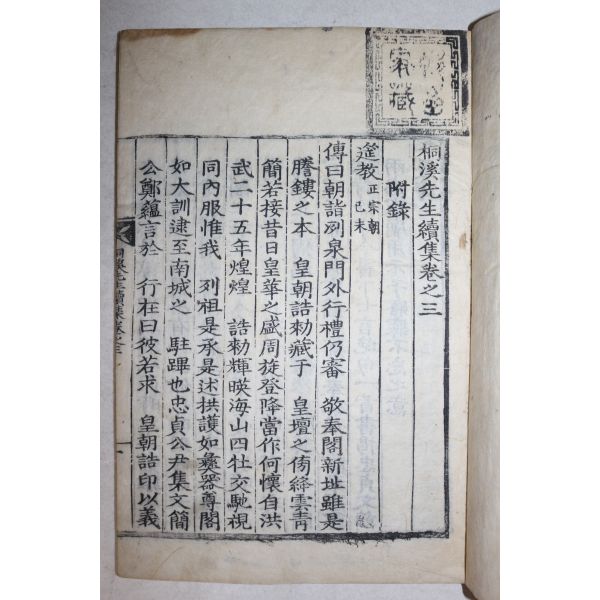 桐溪先生續集卷之三
附錄
筵教正宗朝己未
傳曰朝詣冽泉門外行禮仍審 敬奉閣新址雖是
謄鏤之本 皇朝誥勅藏于 皇壇之傍絳雲靑
簡若接昔日皇華之盛周旋登降當作何懷自洪
武二十五年煌煌 誥勅輝暎海山四牡交馳視
同內服惟我 列祖是承是述拱護如彝器尊閣
如大訓逮至南城之 駐蹕也忠貞公尹集文簡
公鄭蘊言於 行在曰彼若求 皇朝誥印以義
桐溪先生續集卷之三
一
藏